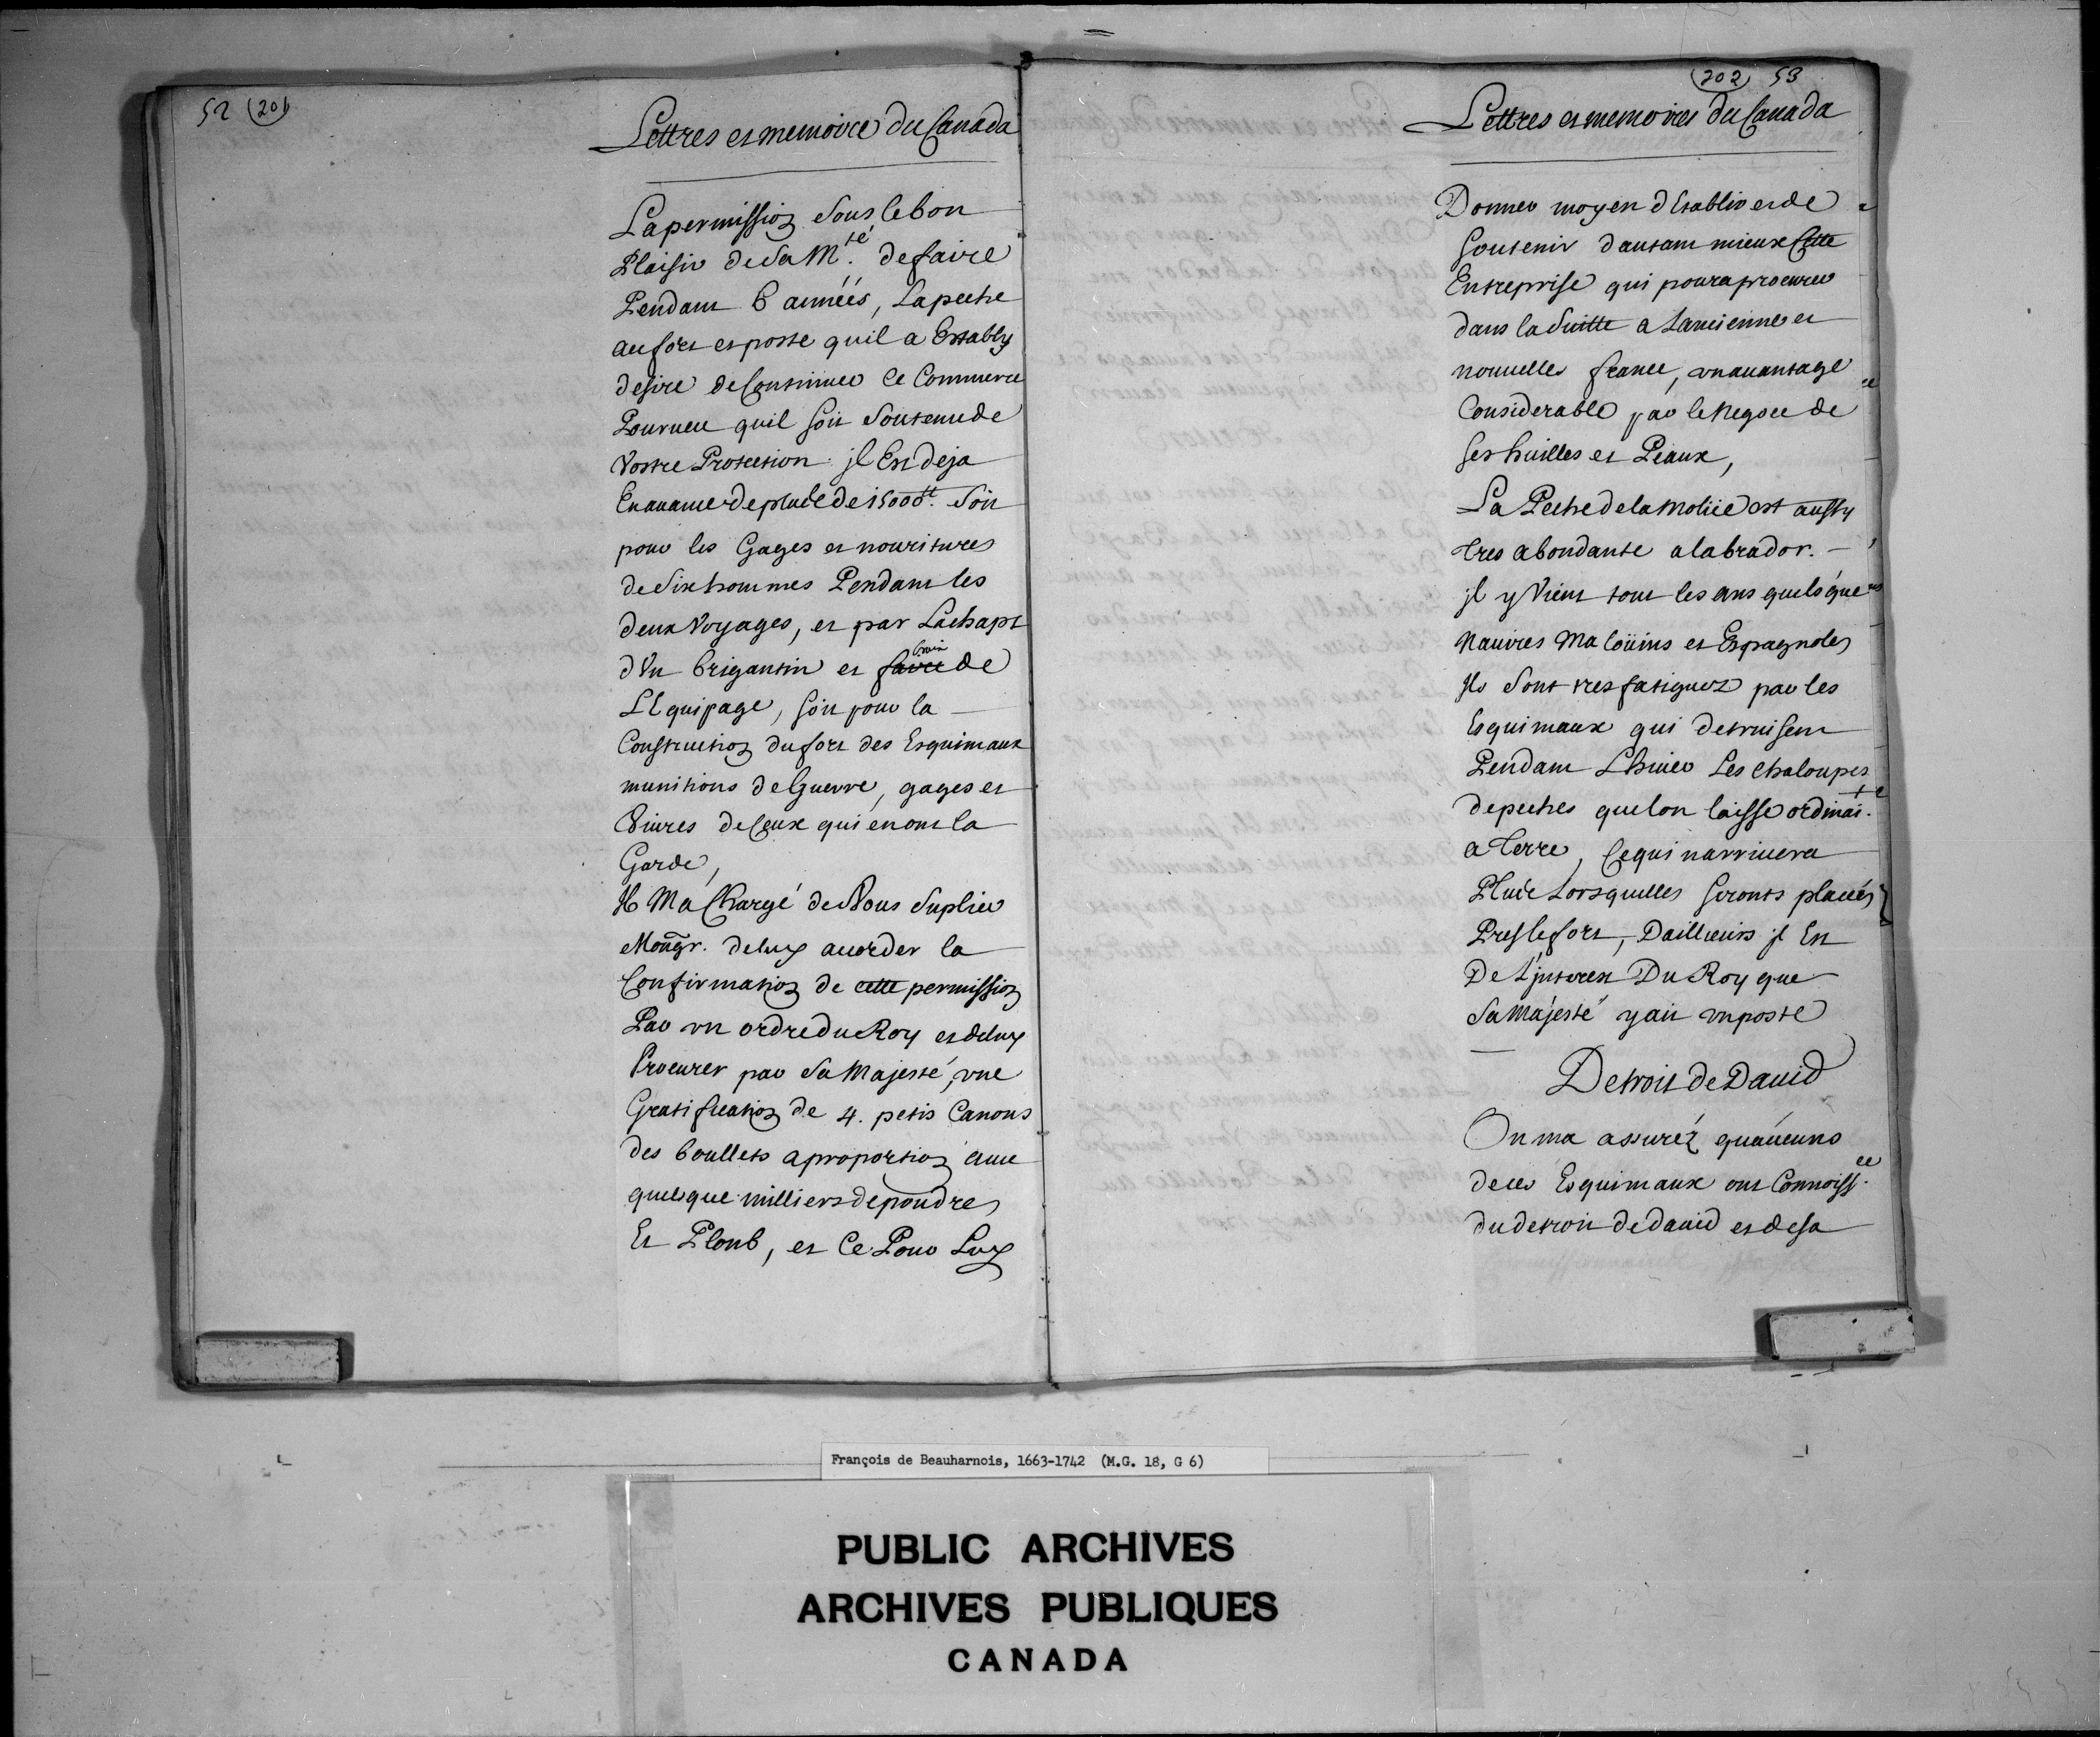 52 (201
Lettres et memoire du Canada
La permission sous le bon
Plaisir de sa M.té de faire
Pendant 6 années, la peche
au fort et poste quil a Establÿ
desire de Continuer Ce Commerce
Pourueu quil soit soutenu de
Vostre Protection jl Est deja
En auance de plus de 15000tt. soit
pour les Gages et nouritures
de six hommes Pendant les
deux Voyages, et par Lachapt
d'Un brigantin et de
LEquipage, soit pour la
Construction du fort des Esquimaux
munitions de Guerre, gages et
Viures de Ceux qui en ont la
Garde,
Jl Ma Chargé de Vous suplier
Mongr. de luy acorder la
Confirmation de cette permission
Par vn ordre du Roy et de luy
Procurer par sa Majesté, vne
Gratification de 4. petis Canons
des boullets a proportion auec
quelque milliers de poudre
Et Plonb, et Ce Pour Luy
(202) 53
Lettres et memoires du Canada
Donner moyen d'Establir et de
Soutenir dautant mieux Cette
Entreprise qui poura procurer
dans la suitte a Lancienne et
nouuelles france, vn auantage
Considerable par le Negoce de
Ses huilles et Peaux,
La Peche de la Molüe est aussy
tres abondante a labrador. –
jl y Vient tout les ans quelsque
Nauires Maloüins et Espagnoles
Jls sont tres fatiguez par les
Esquimaux qui detruisent
Pendant Lhiuer Les chaloupes
de peches que lon laisse ordinai.te
a Terre, Ce qui narriuera
Plus Lorsquelles Seronts placées
Pres le fort, Dailleurs jl Est
De L'jnterest Du Roy que
Sa Majesté y ait vn poste
Detroit de Dauid
On ma assuréz quaucuns
de ces Esquimaux ont Connoiss.ce
du detroit de dauid et de sa
François de Beauharnois, 1663-1742 (M.G. 18, G 6)
PUBLIC ARCHIVES
ARCHIVES PUBLIQUES
CANADA